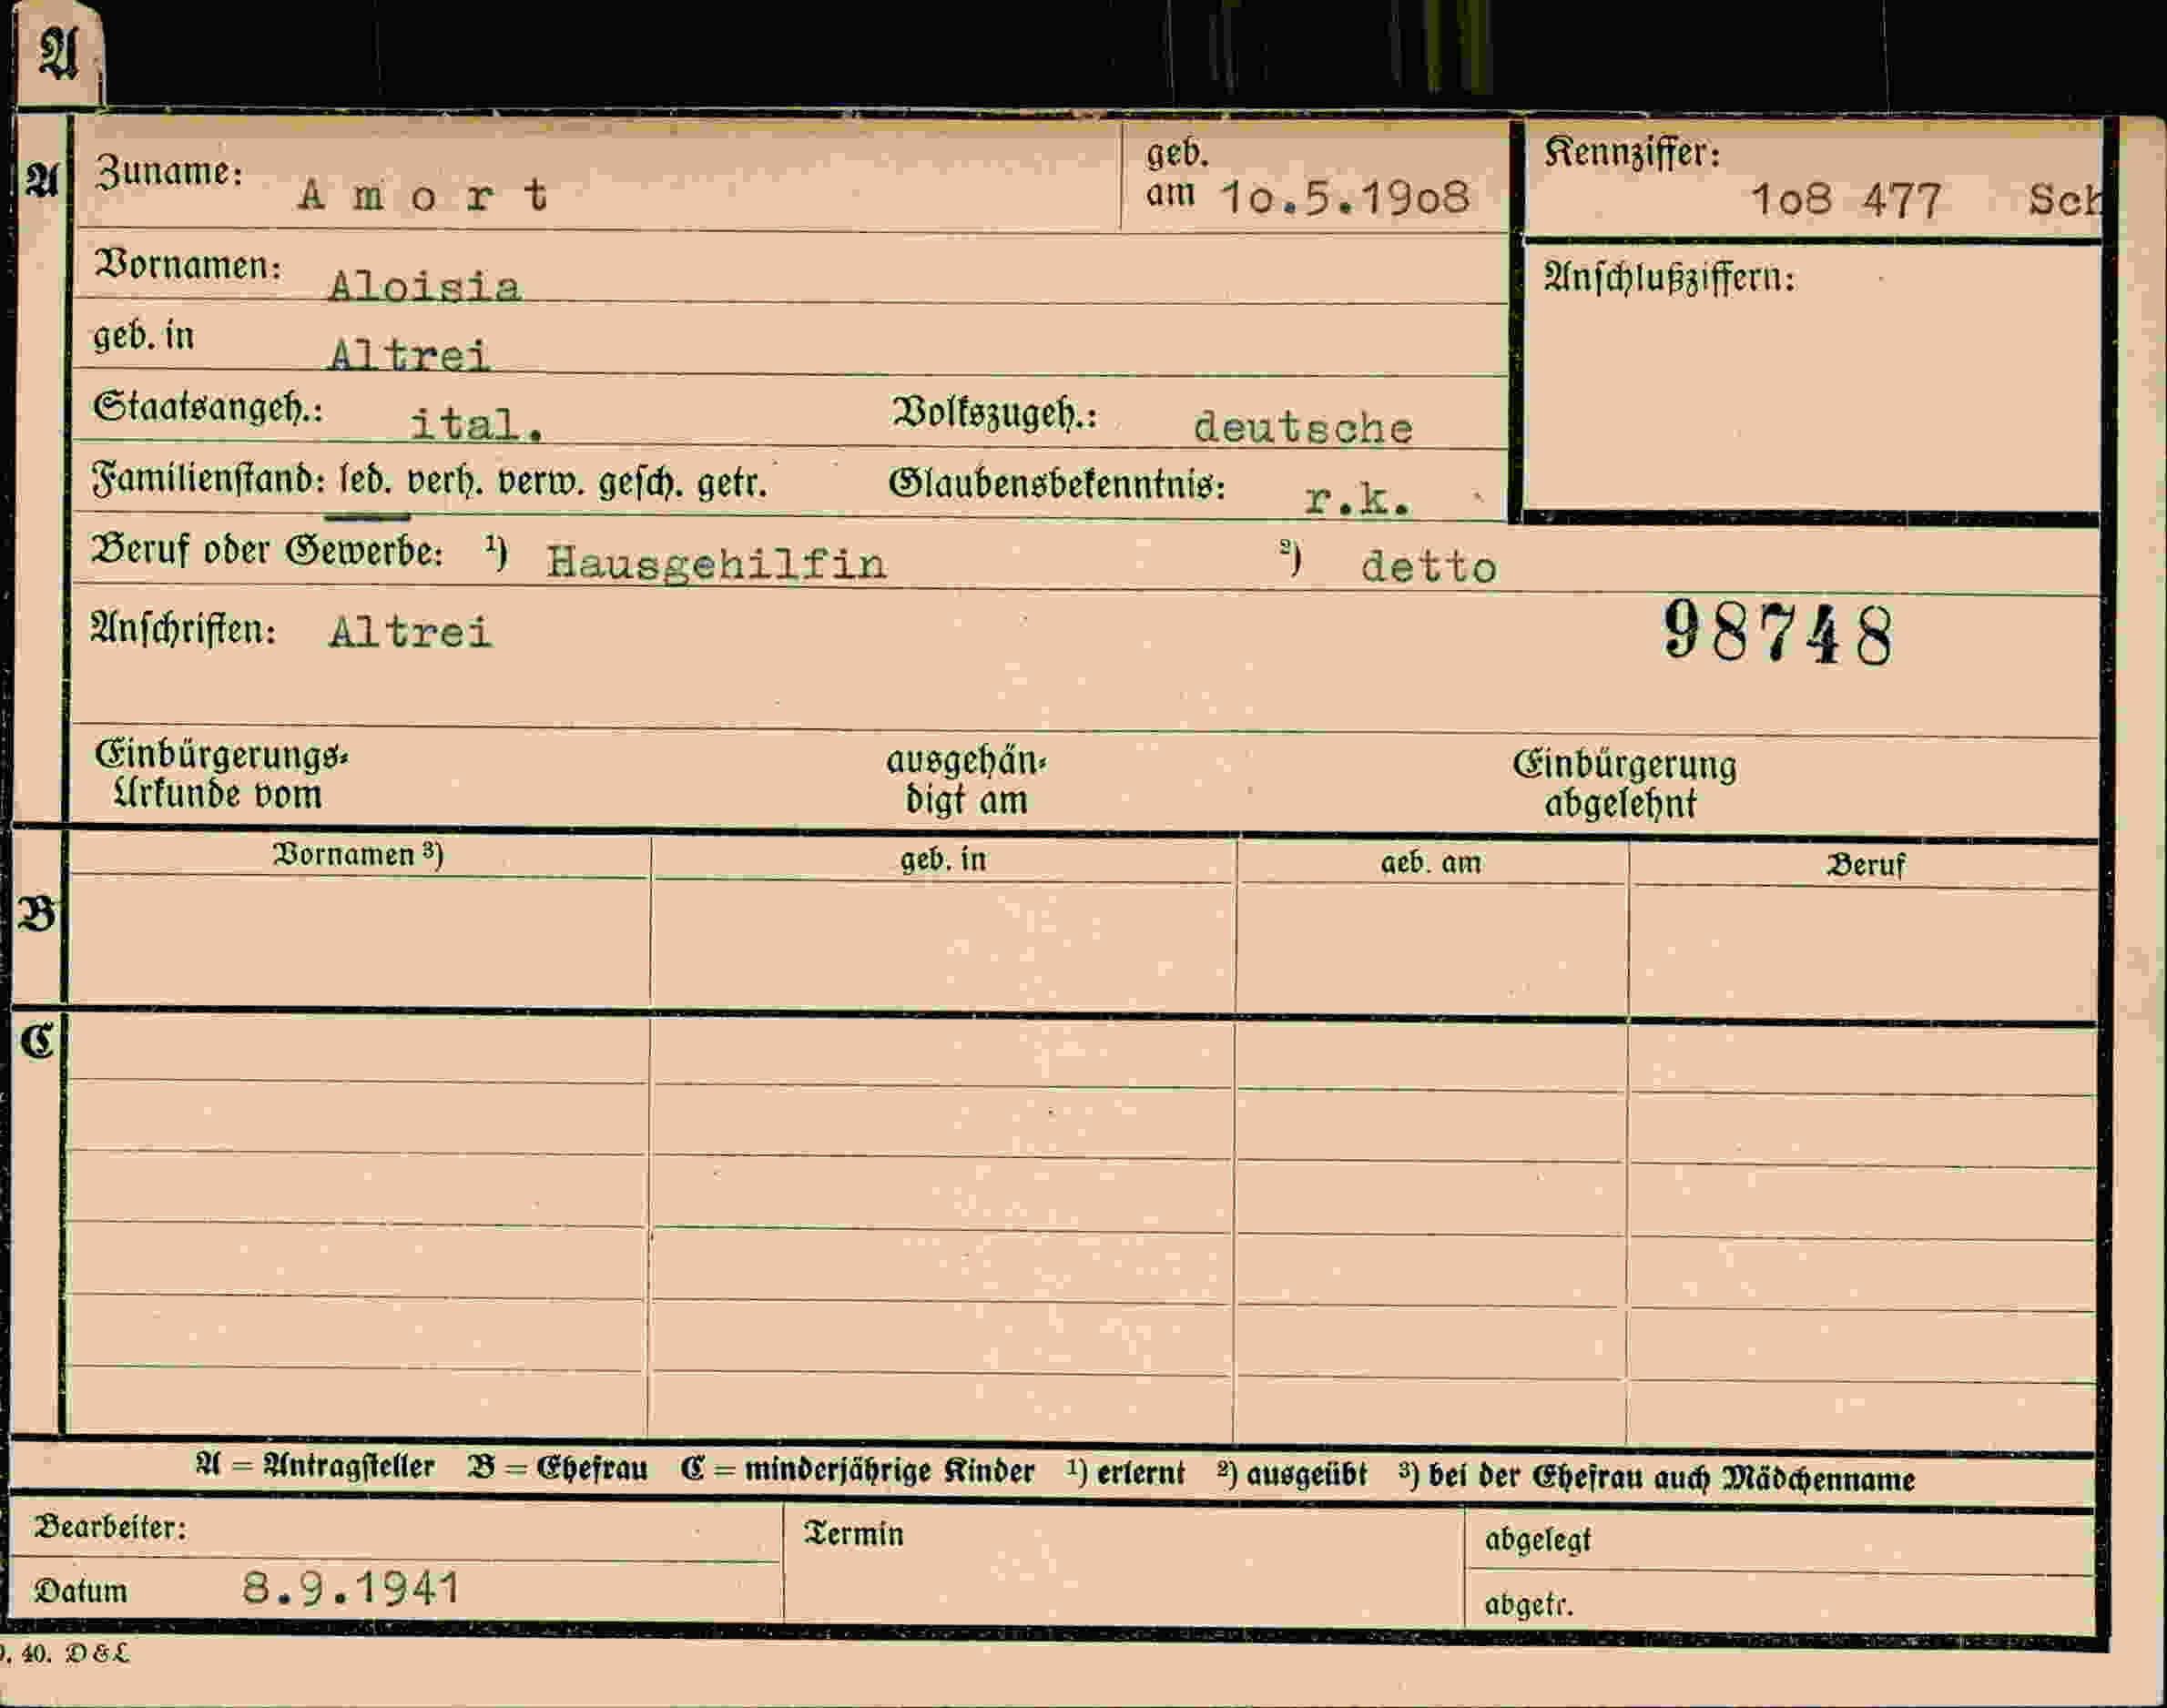 A
A
Zuname: Amort
geb. am 1o.5.19o8
Kennziffer: 1o8 477 Sch
Vornamen: Aloisia
Anschlußziffern:
geb. in Altrei
Staatsangeh.: ital. Volkszugeh.: deutsche
Familienstand: led. verh. verw. gesch. getr. Glaubensbekenntnis: r.k.
Beruf oder Gewerbe: ¹) Hausgehilfin ²) detto
Anschriften: Altrei
98748
Einbürgerungs-
Urkunde vom
ausgehän-
digt am
Einbürgerung
abgelehnt
Vornamen ³) geb. in geb. am Beruf
B
C
A = Antragsteller B = Ehefrau C = minderjährige Kinder ¹) erlernt ²) ausgeübt ³) bei der Ehefrau auch Mädchenname
Bearbeiter: Termin abgelegt
Datum 8.9.1941 abgetr.
40. D & L